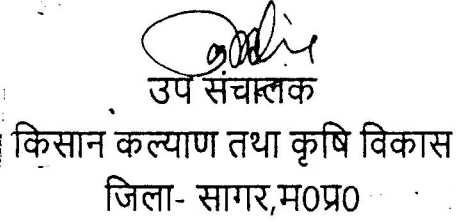 उप संचालक
किसान कल्याण तथा कृषि विकास
जिला- सागर,म0प्र0